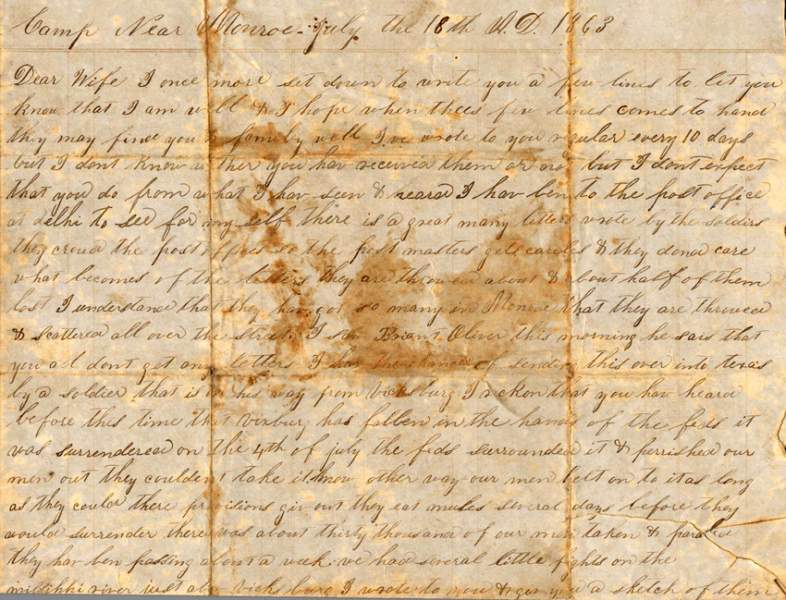 Camp Near Monroe July the 18th A.D. 1863
Dear Wife I once more set down to write you a few lines to let you
know that I am well & I hope when thees few lines comes to hand
they may find you & family well I,ve wrote to you regular every 10 days
but I dont know wther you hav received them or not but I dont expect
that you do from what I hav seen & heard I hav ben to the post office
at delhi to see for my self there is a great many letters wrote by the soldirs
they crowd the post offices so the post masters gets careles & they dond care
what becomes of the letters they are throwed about & about half of them
lost I understand that they hav got so many in Monroe that they are throwed
& scattered all over the streets I saw Briant Oliver this morning he sais that
you al dont get any letters I hav the chance of sending this over into texas
by a soldier that is on his way from Vicksburg I reckon that you hav heard
before this time that vixburg has fallen in the hands of the feds it
was surrendered on the 4th of july the feds surrounded it & perrished our
men out they couldent take it know other way our men helt on to it as long
as they could there provisions giv out they eat mules several days before they
would surrender there was about thirty thousand of our men taken & paroled
they hav ben passing about a week we had several little fights on the
river just abov vicksburg I wrote to you & giv you a sketch of them